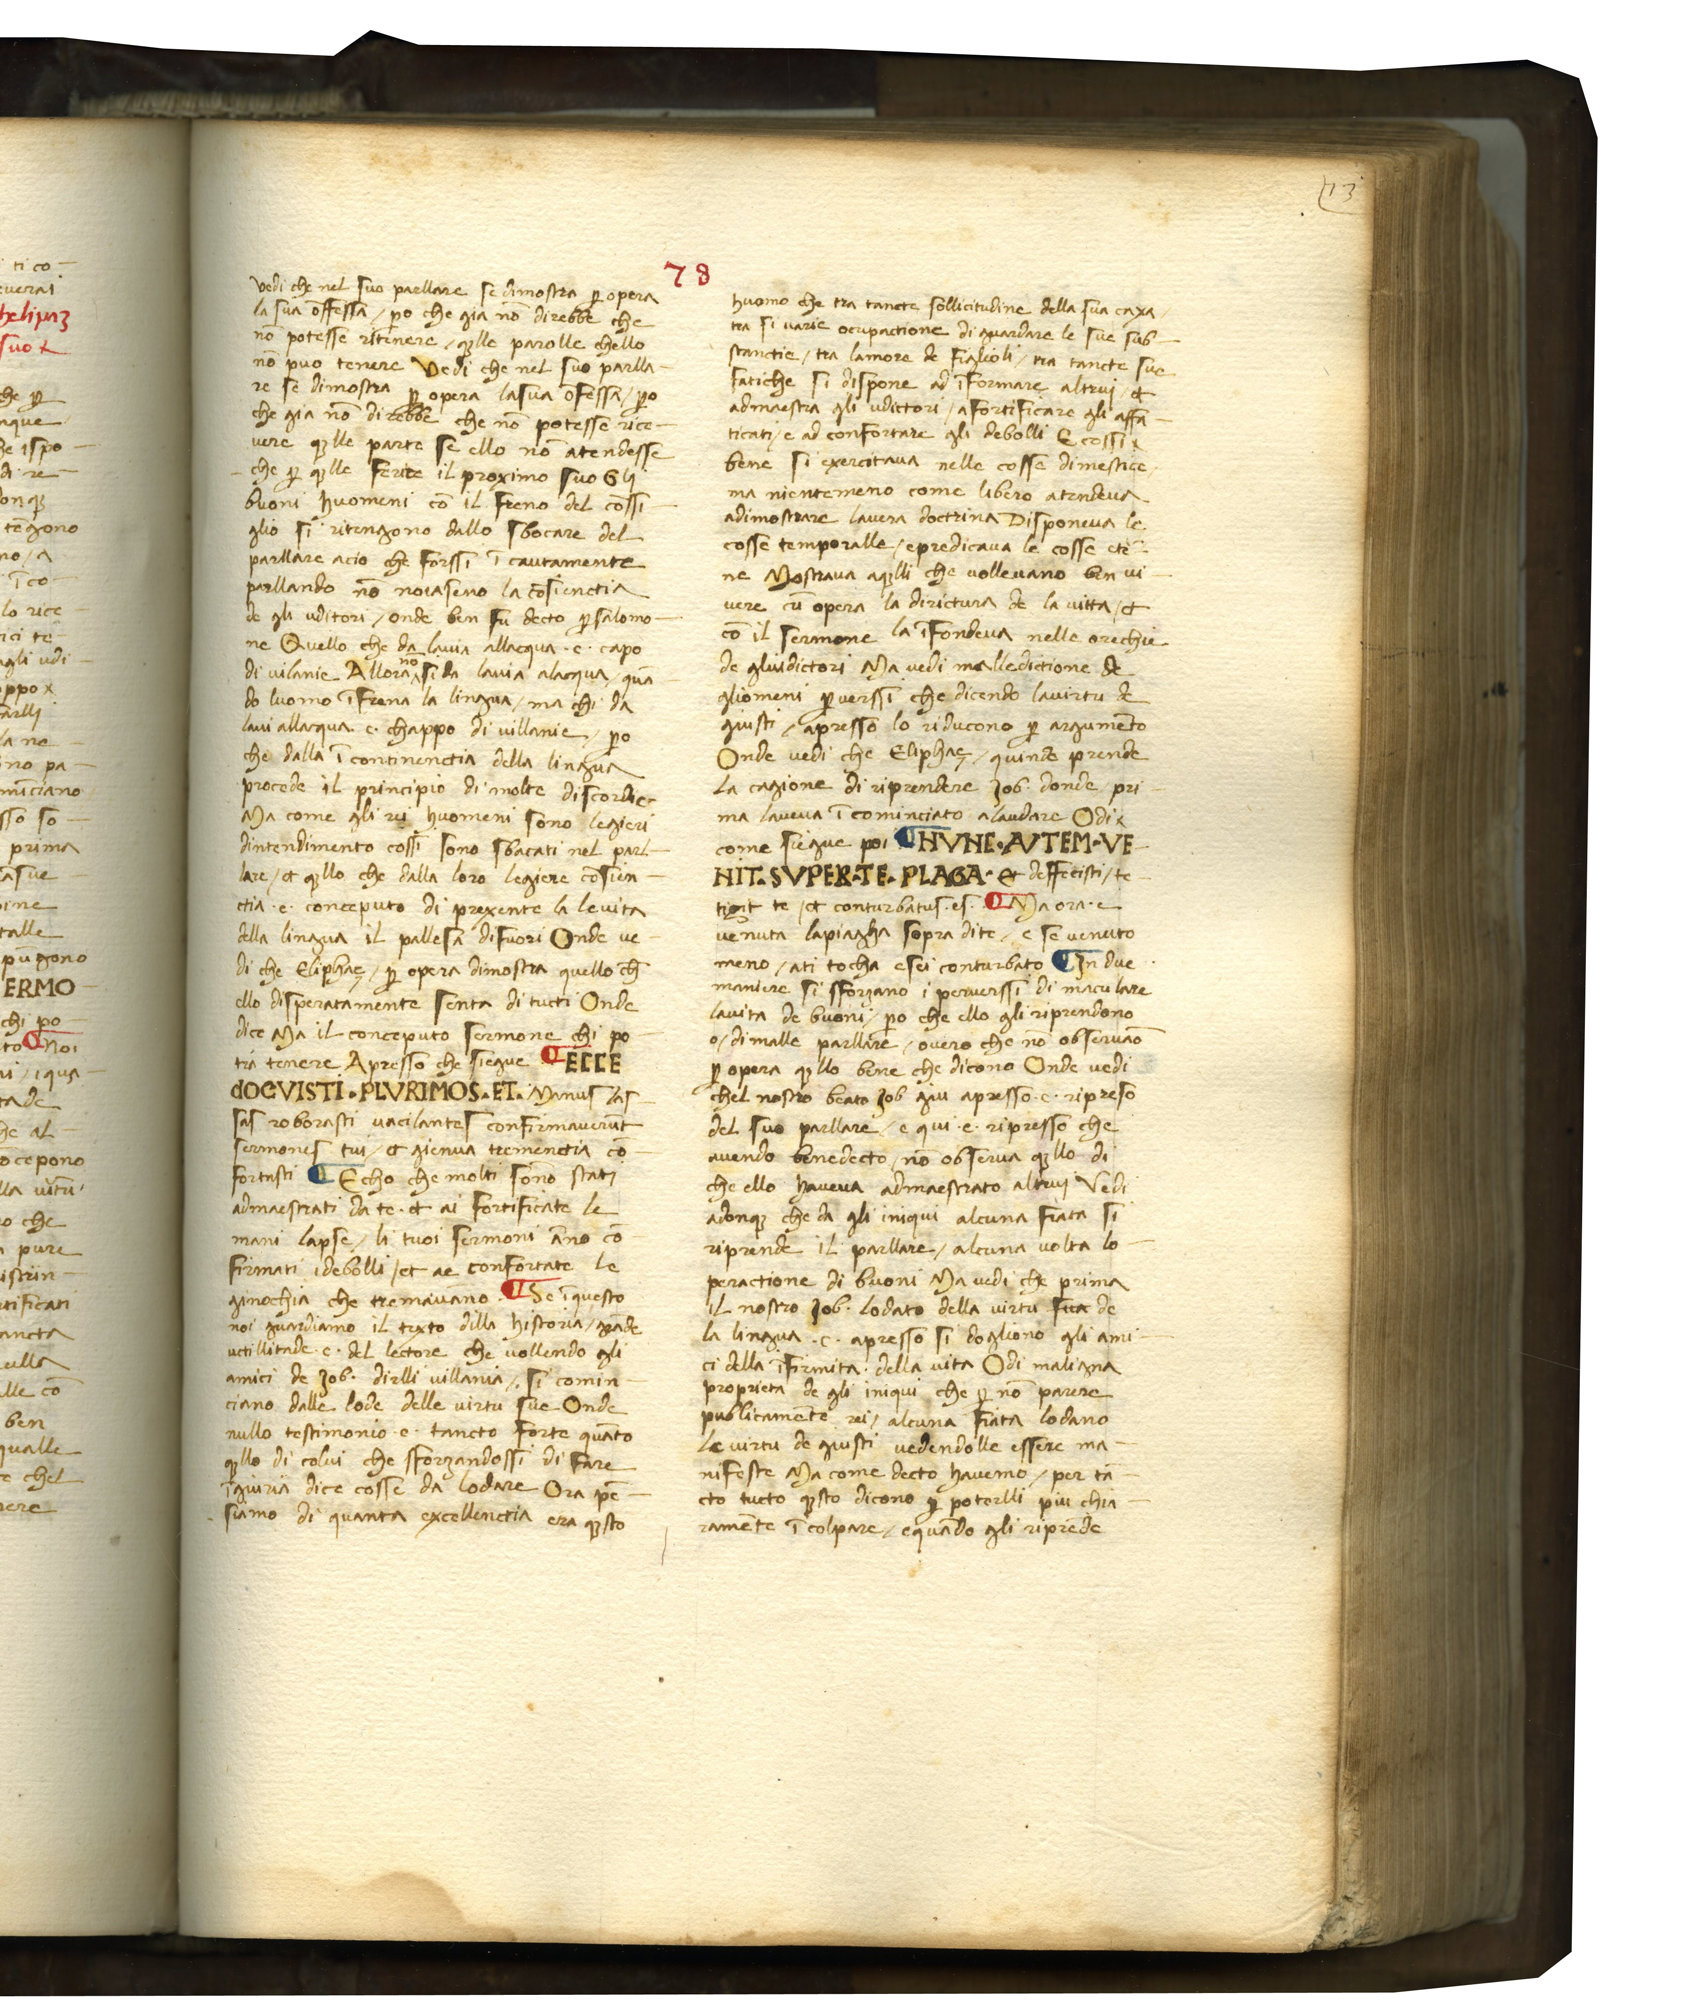 13
78
vedi che nel suo parllare se dimostra ꝑ opera
la sua offessa / ꝑo che gia nō direbbe che
nō potesse ritinere / q̄lle parolle chello
nō puo tenere Vedi che nel suo parlla-
re se dimostra ꝑ opera lasua offessa / ꝑo
che gia nō direbbe che nō potesse rice-
vere q̄lle parte se ello nō atendesse
che ꝑ q̄lle ferite il proximo suo Gli
buoni huomeni cō il freno del cossi-
glio si ritengono dallo sbocare del
parllare acio che forssi ī cautamente
parllando nō noiaseno la cōsienctia
de gli uditori / onde ben fu decto ꝑ salomo-
ne Quello che da lauia allacqua · e · capo
di vilanie Allora no si da lauia alacqua / quā-
do luomo īfrena la lingua / ma chi da
laui allacqua · e · chappo di villanie / ꝑo
che dalla ī continenctia della lingua
procede il principio di molte discordie
Ma come gli rei huomeni sono legieri
dintendimento cossi sono sbacati nel parl-
lare / et q̄llo che dalla loro legiere cōsien-
ctia · e · conceputo di prexente la levita
della lingua il pallesa difuori Onde ve-
di che Eliphaç / ꝑ opera dimostra quello ch̄
ello disperatamente senta di tucti Onde
dice Ma il conceputo sermone chi po-
tra tenere Apresso che siegue ¶ ECCE
dOCVISTI · PLVRIMOS · ET · Manus las-
sas roborasti vacilantes confirmauerūt
sermones tui / et gienua tremenctia cō-
fortasti ¶ Echo che molti sono stati
admaestrati da te · et ai fortificate le
mani lapse / li tuoi sermoni āno cō-
firmati idebolli / et ae confortate le
ginochia che tremavano ¶ Se ī questo
noi guardiamo il texto dilla historia / grāde
uctillitade · e · del lectore che vollendo gli
amici de Job · dirlli villania / si comin-
ciano dalle lode delle virtu sue Onde
nullo testimonio · e · tancto forte quāto
q̄llo di colui che sforzandossi di fare
īgiuria dice cosse da lodare Ora pē-
siamo di quanta excellenctia era q̄sto
huomo che tra tancte sollicitudine della sua caxa /
tra si varie ocupactione di guardare le sue sub-
stanctie / tra lamore de figlioli / tra tancte sue
fatiche si dispone ad īformare altrui / et
admaestra gli udittori / afortificare gli affa-
ticati / e ad confortare gli debolli E cossi
bene si exercitaua nelle cosse dimestice /
ma nientemeno come libero atendeua
adimostrare lavera doctrina Disponeua le
cosse temporalle / epredicaua le cosse etē-
ne Mostraua aq̄lli che vollevano ben vi-
vere cū opera la dirictura de la vitta / et
cō il sermone la īfondeua nelle orechie
de gluidictori Ma vedi malledictione de
gliomeni ꝑverssi che dicendo lavirtu de
giusti / apresso lo riducono ꝑ argumēto
Onde vedi che Eliphaç / quinde prende
la cagione di riprendere Job · donde pri-
ma laueua ī cominciato alaudare Odi
come siegue poi ¶ HVNE · AVTEM · VE-
NIT · SVPER · TE · PLAGA · et deffecisti / te-
tigit te / et conturbatus · es · ¶ Ma ora · e
venuta lapiagha sopra dite / e se venuto
meno / ati tocha esei conturbato ¶ In due
maniere si sforzano i perverssi di maculare
lavita de buoni / ꝑo che ello gli riprendono
o / di malle parllare / overo che nō observāo
ꝑ opera q̄llo bene che dicono Onde vedi
chel nostro beato Job giu apresso · e · ripreso
del suo parllare / e qui · e · ripresso che
avendo benedecto / nō observa q̄llo di
che ello haveua admaestrato altrui Vedi
adonq̄ che da gli iniqui alcuna fiata si
riprende il parllare / alcuna volta lo-
peractione di buoni Ma vedi che prima
il nostro Job · lodato della virtu de
la lingua · e · apresso si dogliono gli ami-
ci della īfirmita · della vita Odi maligna
proprieta de gli iniqui che ꝑ nō parere
publicamēte rei / alcuna fiata lodano
le virtu de giusti vedendolle essere ma-
nifeste Ma come decto havemo / per tā-
cto tucto q̄sto dicono ꝑ poterlli piu chia-
ramēte ī colpare / equādo gli riprēde